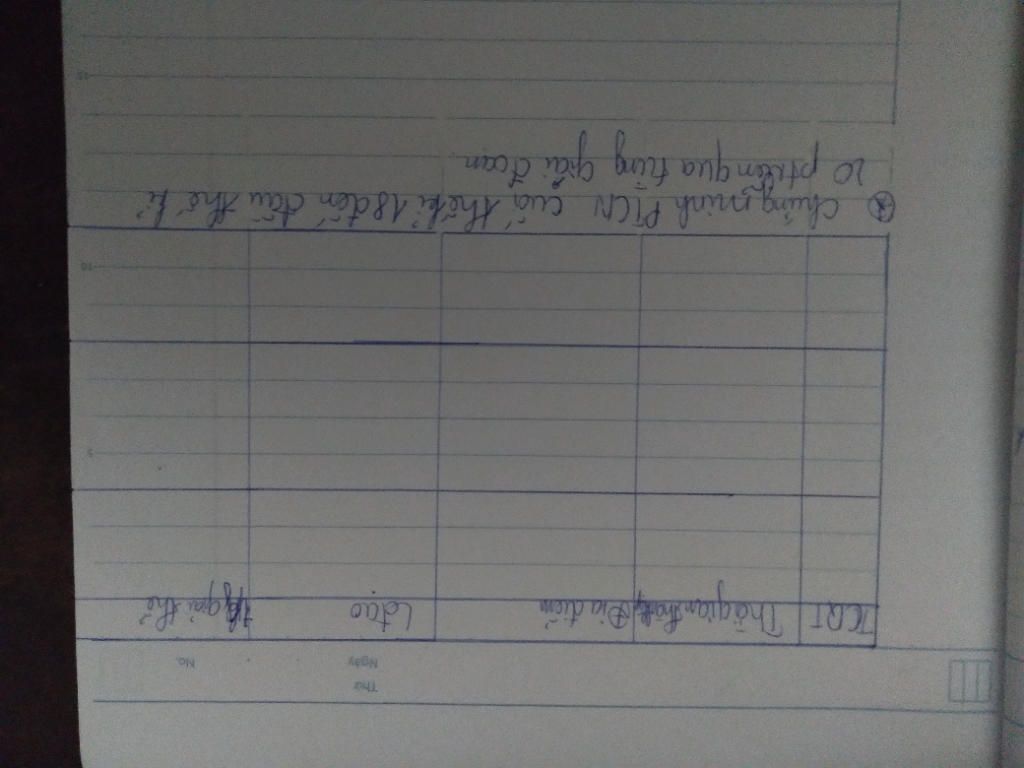 Thứ
Ngày No.
TCQT Thời gian Địa điểm L đạo giải thể
5
10
* Chứng minh PTCN cuối thế kỉ 18 đến đầu thế kỉ
20 pt qua từng giai đoạn
15